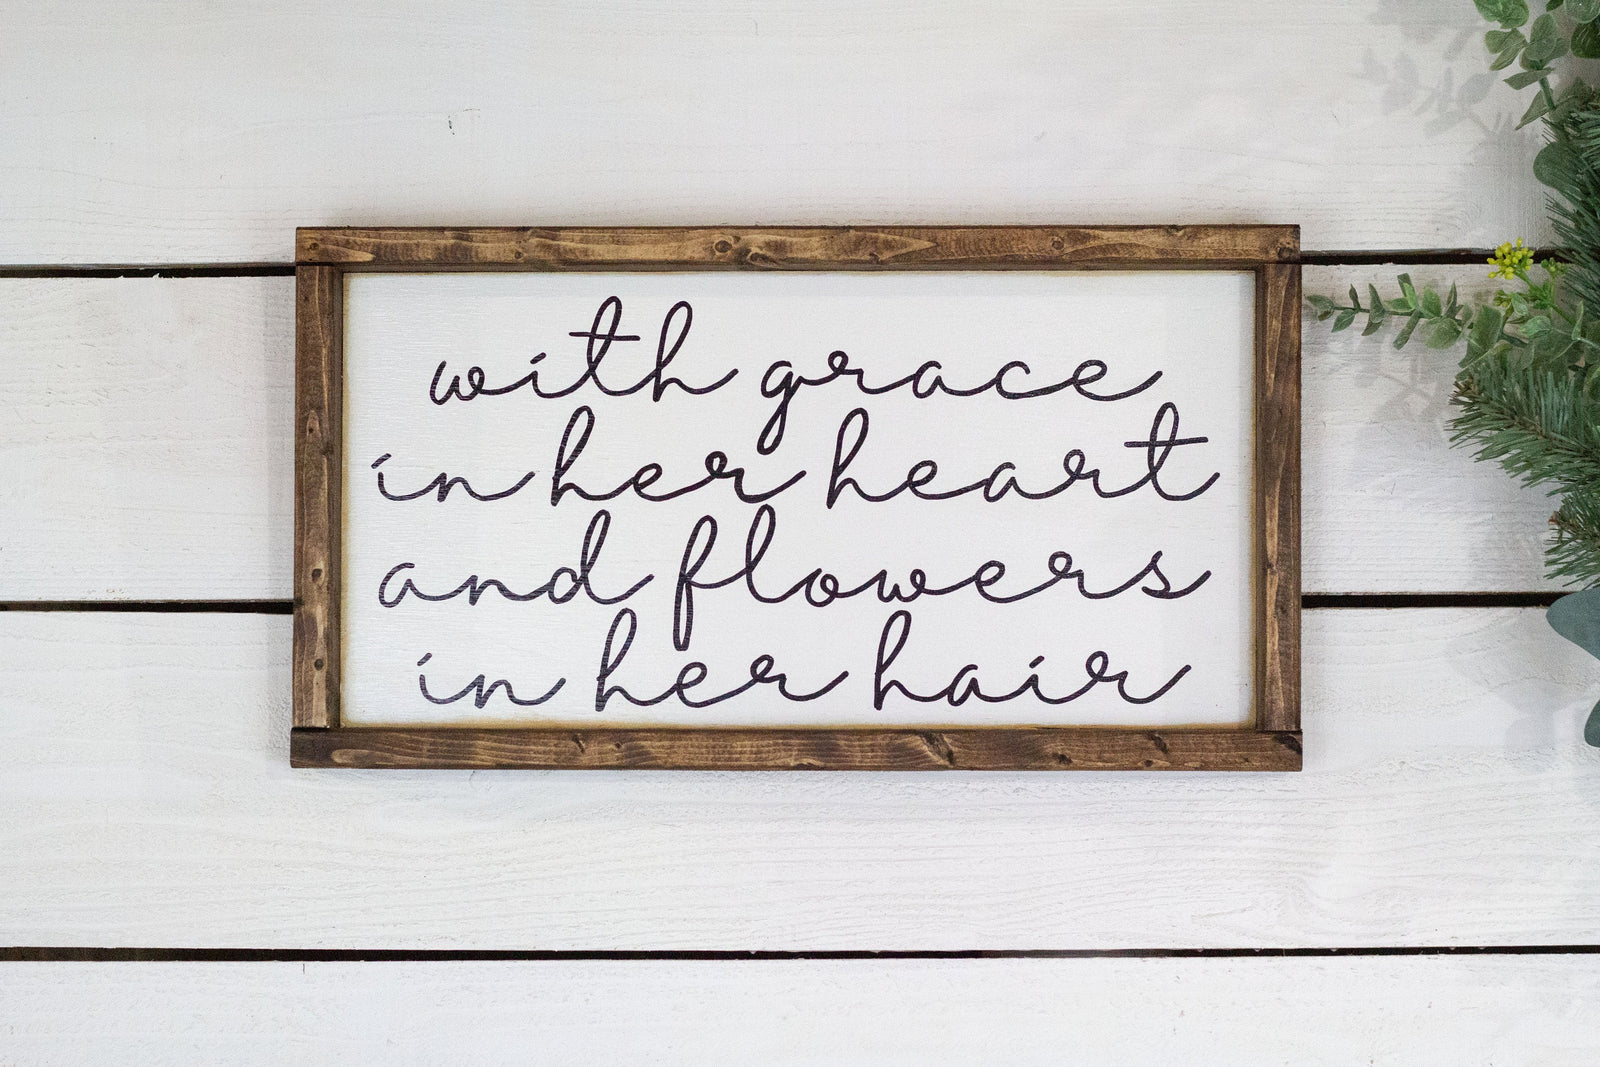 with grace
in her heart
and flowers
in her hair